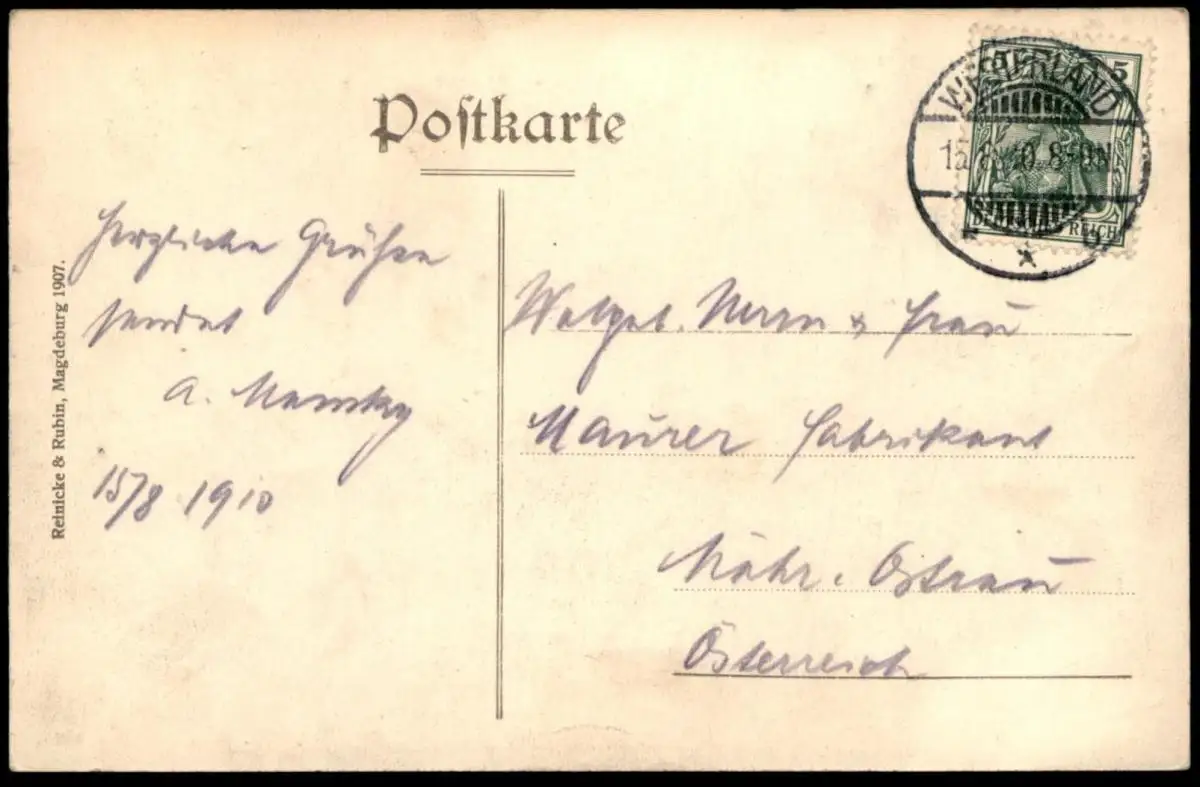 Postkarte
5 5
WESTERLAND
15.8.10.8-9N.
REICH
Herzliche Grüße
sendet
A.
15/8 1910
Herrn & Frau
Maurer Fabrikant
Mähr. Ostrau
Österreich
Reinicke & Rubin, Magdeburg 1907.